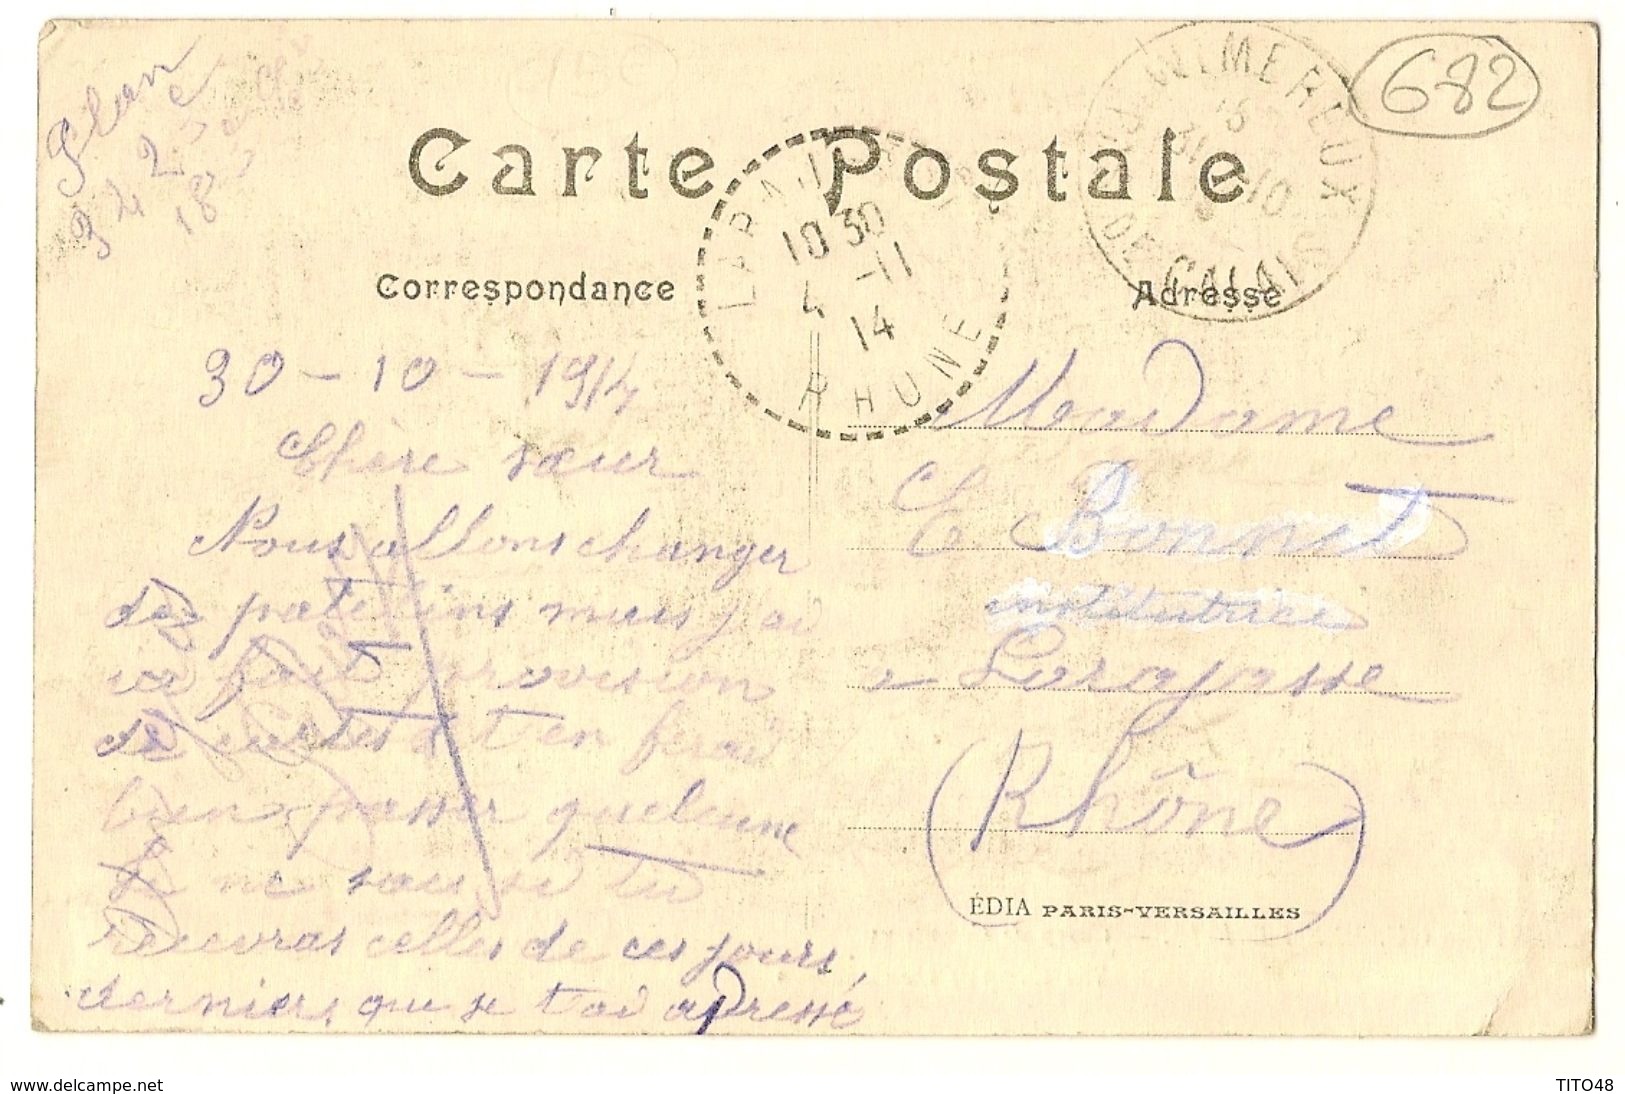 682
Carte Postale
WIMEREUX
DE CALAIS
10 30
4 -11
14
RHONE
Correspondance
Adresse
30 - 10 - 1914
Chère sœur
Nous allons changer
de patelins mais j'ai
ici fait provision
de cartes et t'en ferai
bien passer quelcune
Je ne sais si tu
recevras celles de ces jours
derniers, que je t'ai adressé
Madame
E Bonnet
institutrice
a Larajasse
(Rhône)
ÉDIA PARIS-VERSAILLES
www.delcampe.net
TITO48